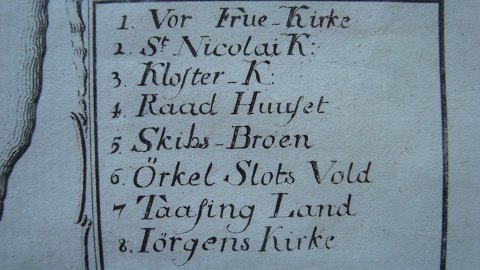 1. Vor Frue-Kirke
2. St. Nicolai K:
3. Kloſter-K:
4. Raad Huuſet
5. Skibs-Broen
6. Örkel Slots Vold
7 Taaſing Land
8. Iörgens Kirke